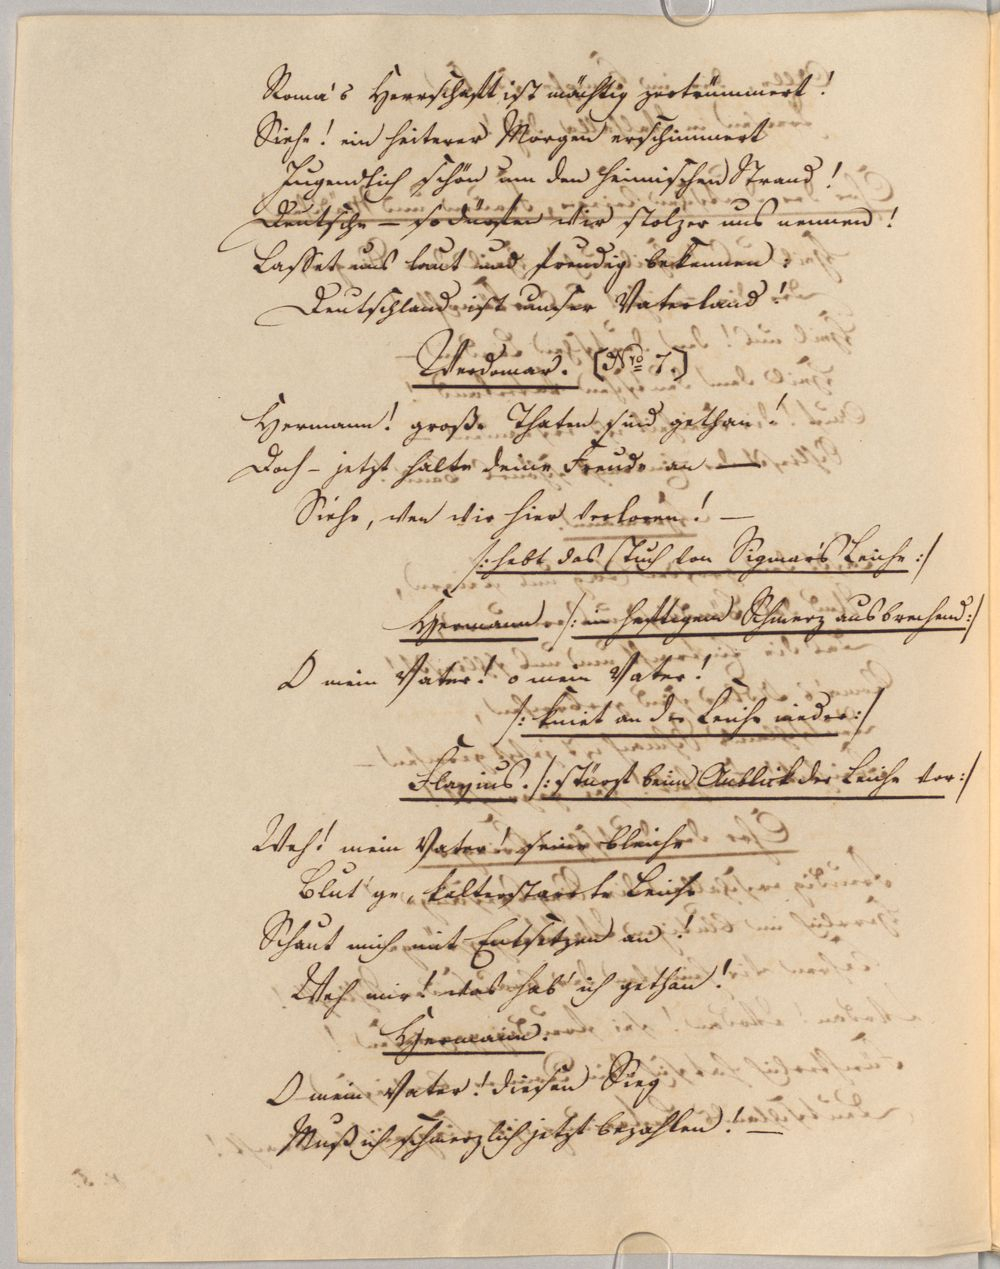 Roma's Herrschaft ist mächtig zertrümmert!
Siehe! ein heiterer Morgen erschimmert
Jugendlich schön um den heimischen Strand!
Deutsche – so dürfen wir stolzer uns nennen!
Lasset uns laut und freudig bekennen:
Deutschland ist unser Vaterland!
Werdomar. [Nro 7.]
Hermann! große Thaten sind gethan!
Doch – jetzt halte deine Freude an —
Siehe, wen wir hier verloren! —
/: hebt das Tuch von Sigmar's Leiche :/
Hermann /: in heftigem Schmerz ausbrechend :/
O mein Vater! o mein Vater!
/: kniet an der Leiche nieder :/
Flavius. /: stürzt beim Anblick der Leiche vor :/
Weh! mein Vater! seine bleiche
Blut'ge, kalterstarrte Leiche
Schaut mich mit Entsetzen an!
Weh mir! was hab' ich gethan!
Hermann.
O mein Vater! diesen Sieg
Muß ich schmerzlich jetzt bezahlen! —